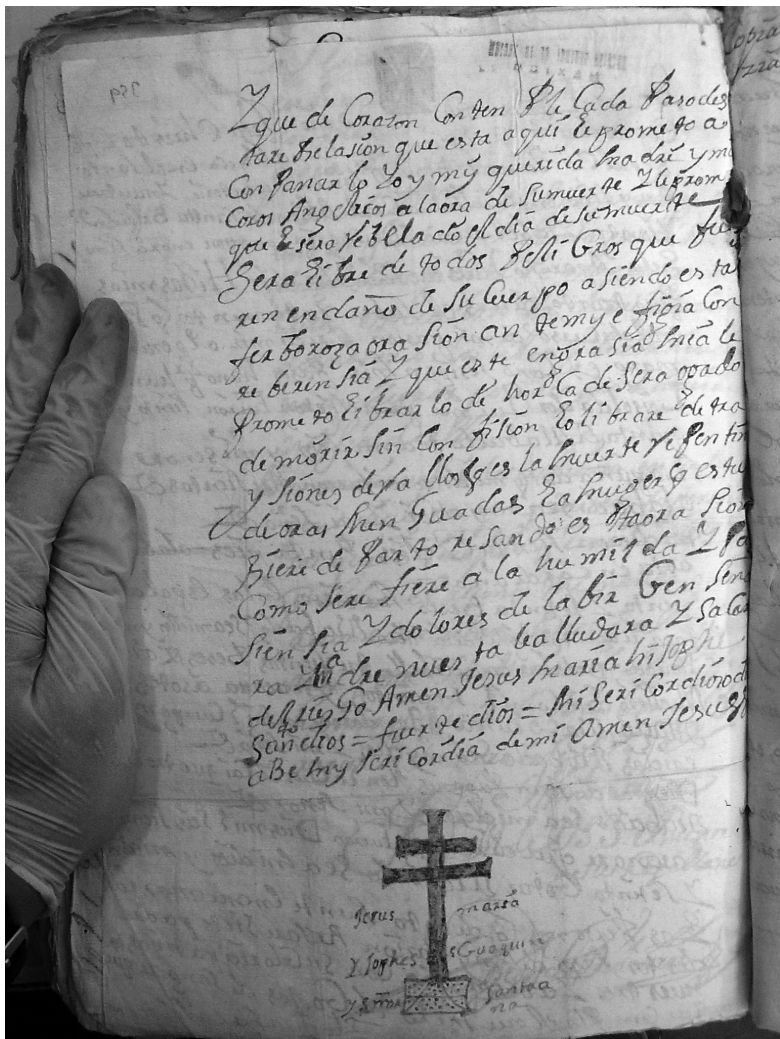 Z que de Corazon Conten Ple Cada Paso des
tare Relasion que esta aqui Le prometo a
Con Panar lo Yo y my querida madre y m
Coros Angelicos a la ora de su muerte Z le prom
que le sera Rebelado el dia de su muerte
Sera Libre de todos Peli Gros que fu
ren en daño de su Cuerpo asiendo esta
fer boroza ora sion an te my e figia Con
re beren sia Z que este en gra sia mia le
Prometo Librar lo de
de morir sin Con fision Lo librare de tra
y siones de la muerte Repentin
de oras men Guadas La muger q estu
biere de Parto resando esta ora sion
Como se re fiere a la humilda Z Pa
sien sia Z dolores de la bir Gen Seño
ra Madre nues ta la alludara Z Sacar
de Riesgo Amen Jesus maria hi Jophe
Santo dios = fuerte dios = Mi Seri Cordioso d
a Be my seri Cordia de mi Amen Jesus
Jesus maria
Y Jophes Guaquin
y señora Santa a
na